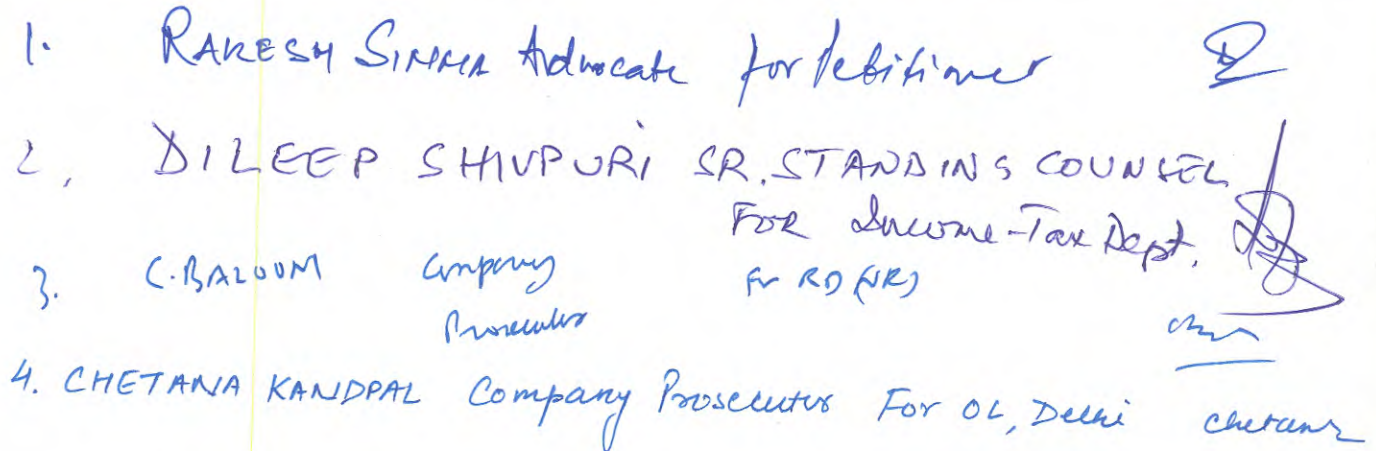 1. RAKESH SINHA Advocate for Petitioner
2, DILEEP SHIVPURI SR. STANDING COUNSEL
FOR Income-Tax Dept.
3. C. BALOONI Company for RD (NR)
Prosecutor
4. CHETANA KANDPAL Company Prosecutor For OL, Delhi Chetana